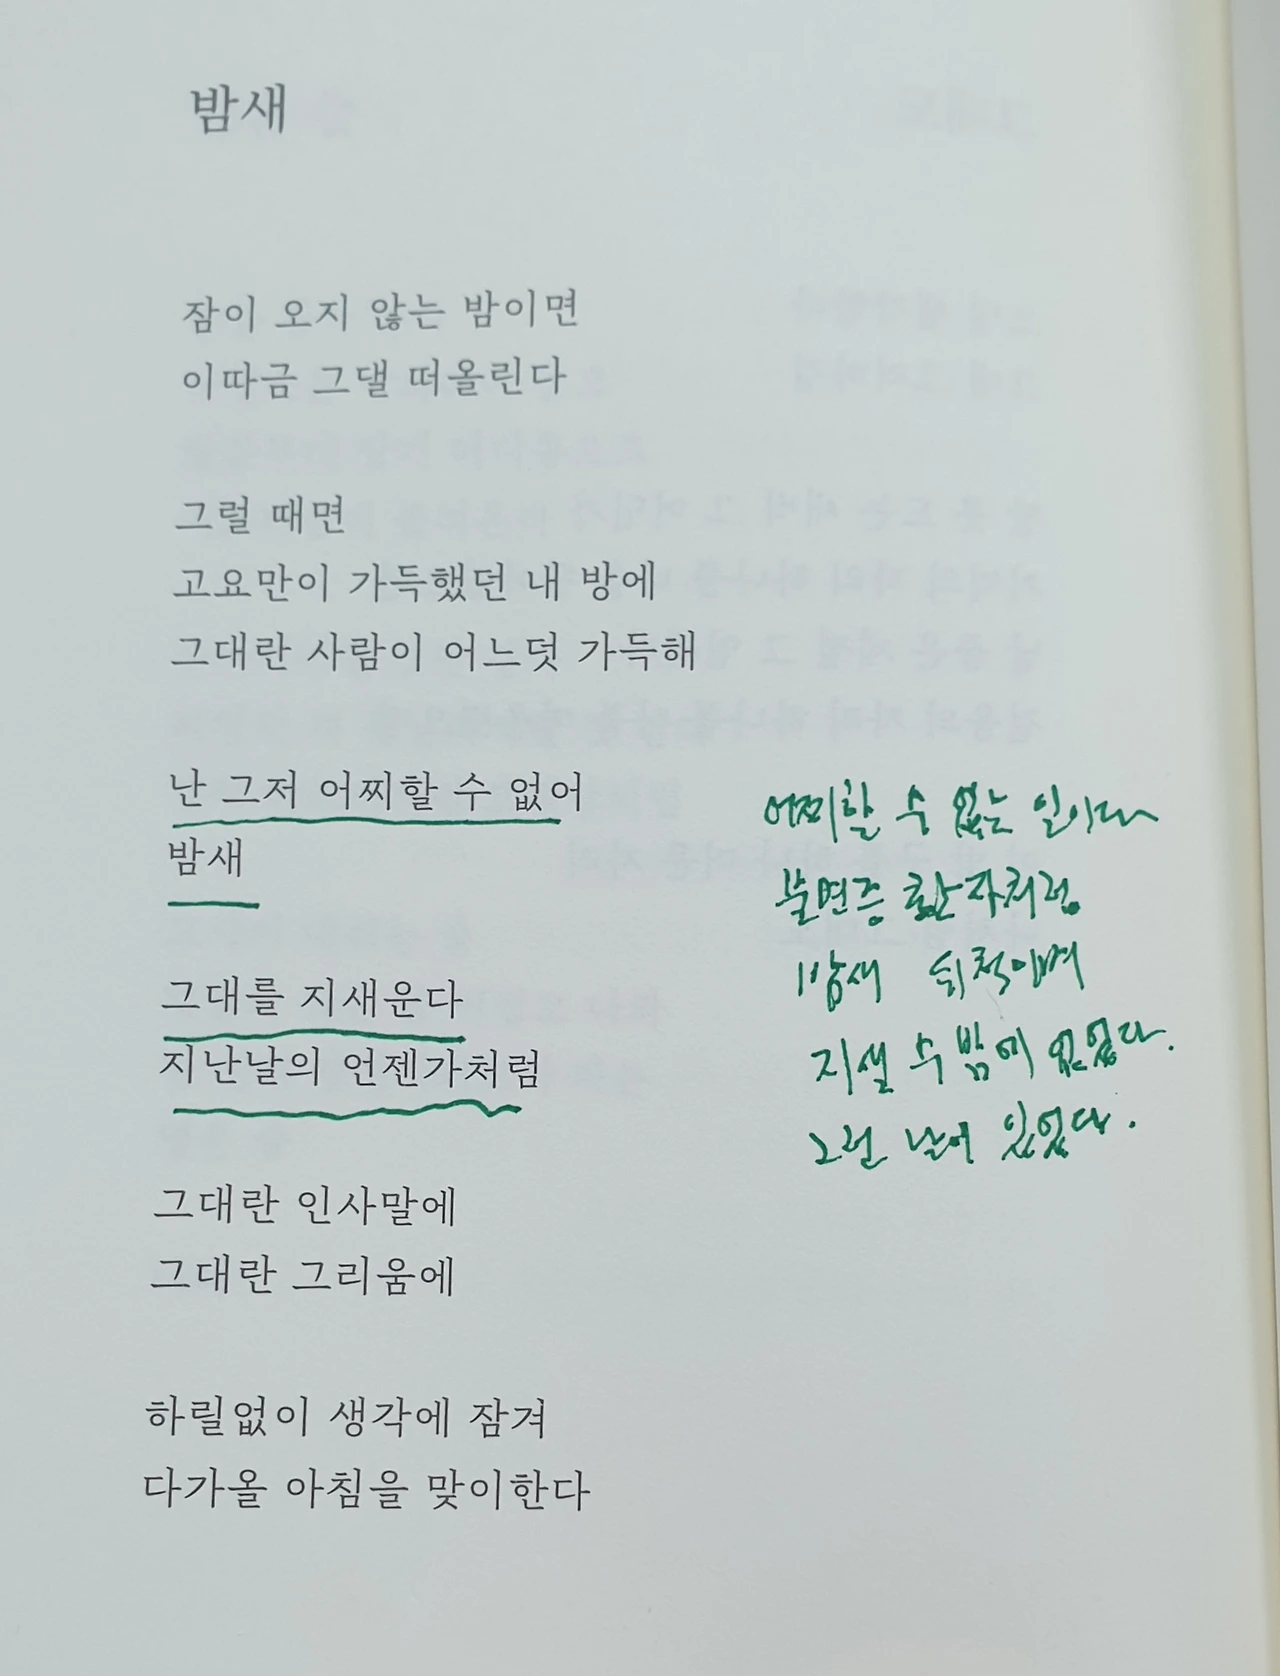 밤새
잠이 오지 않는 밤이면
이따금 그댈 떠올린다
그럴 때면
고요만이 가득했던 내 방에
그대란 사람이 어느덧 가득해
난 그저 어찌할 수 없어
밤새
그대를 지새운다
지난날의 언젠가처럼
그대란 인사말에
그대란 그리움에
하릴없이 생각에 잠겨
다가올 아침을 맞이한다
어찌할 수 없는 일이다
불면증 환자처럼
밤새 뒤척이며
지샐 수밖에 없었다.
그런 날이 있었다.